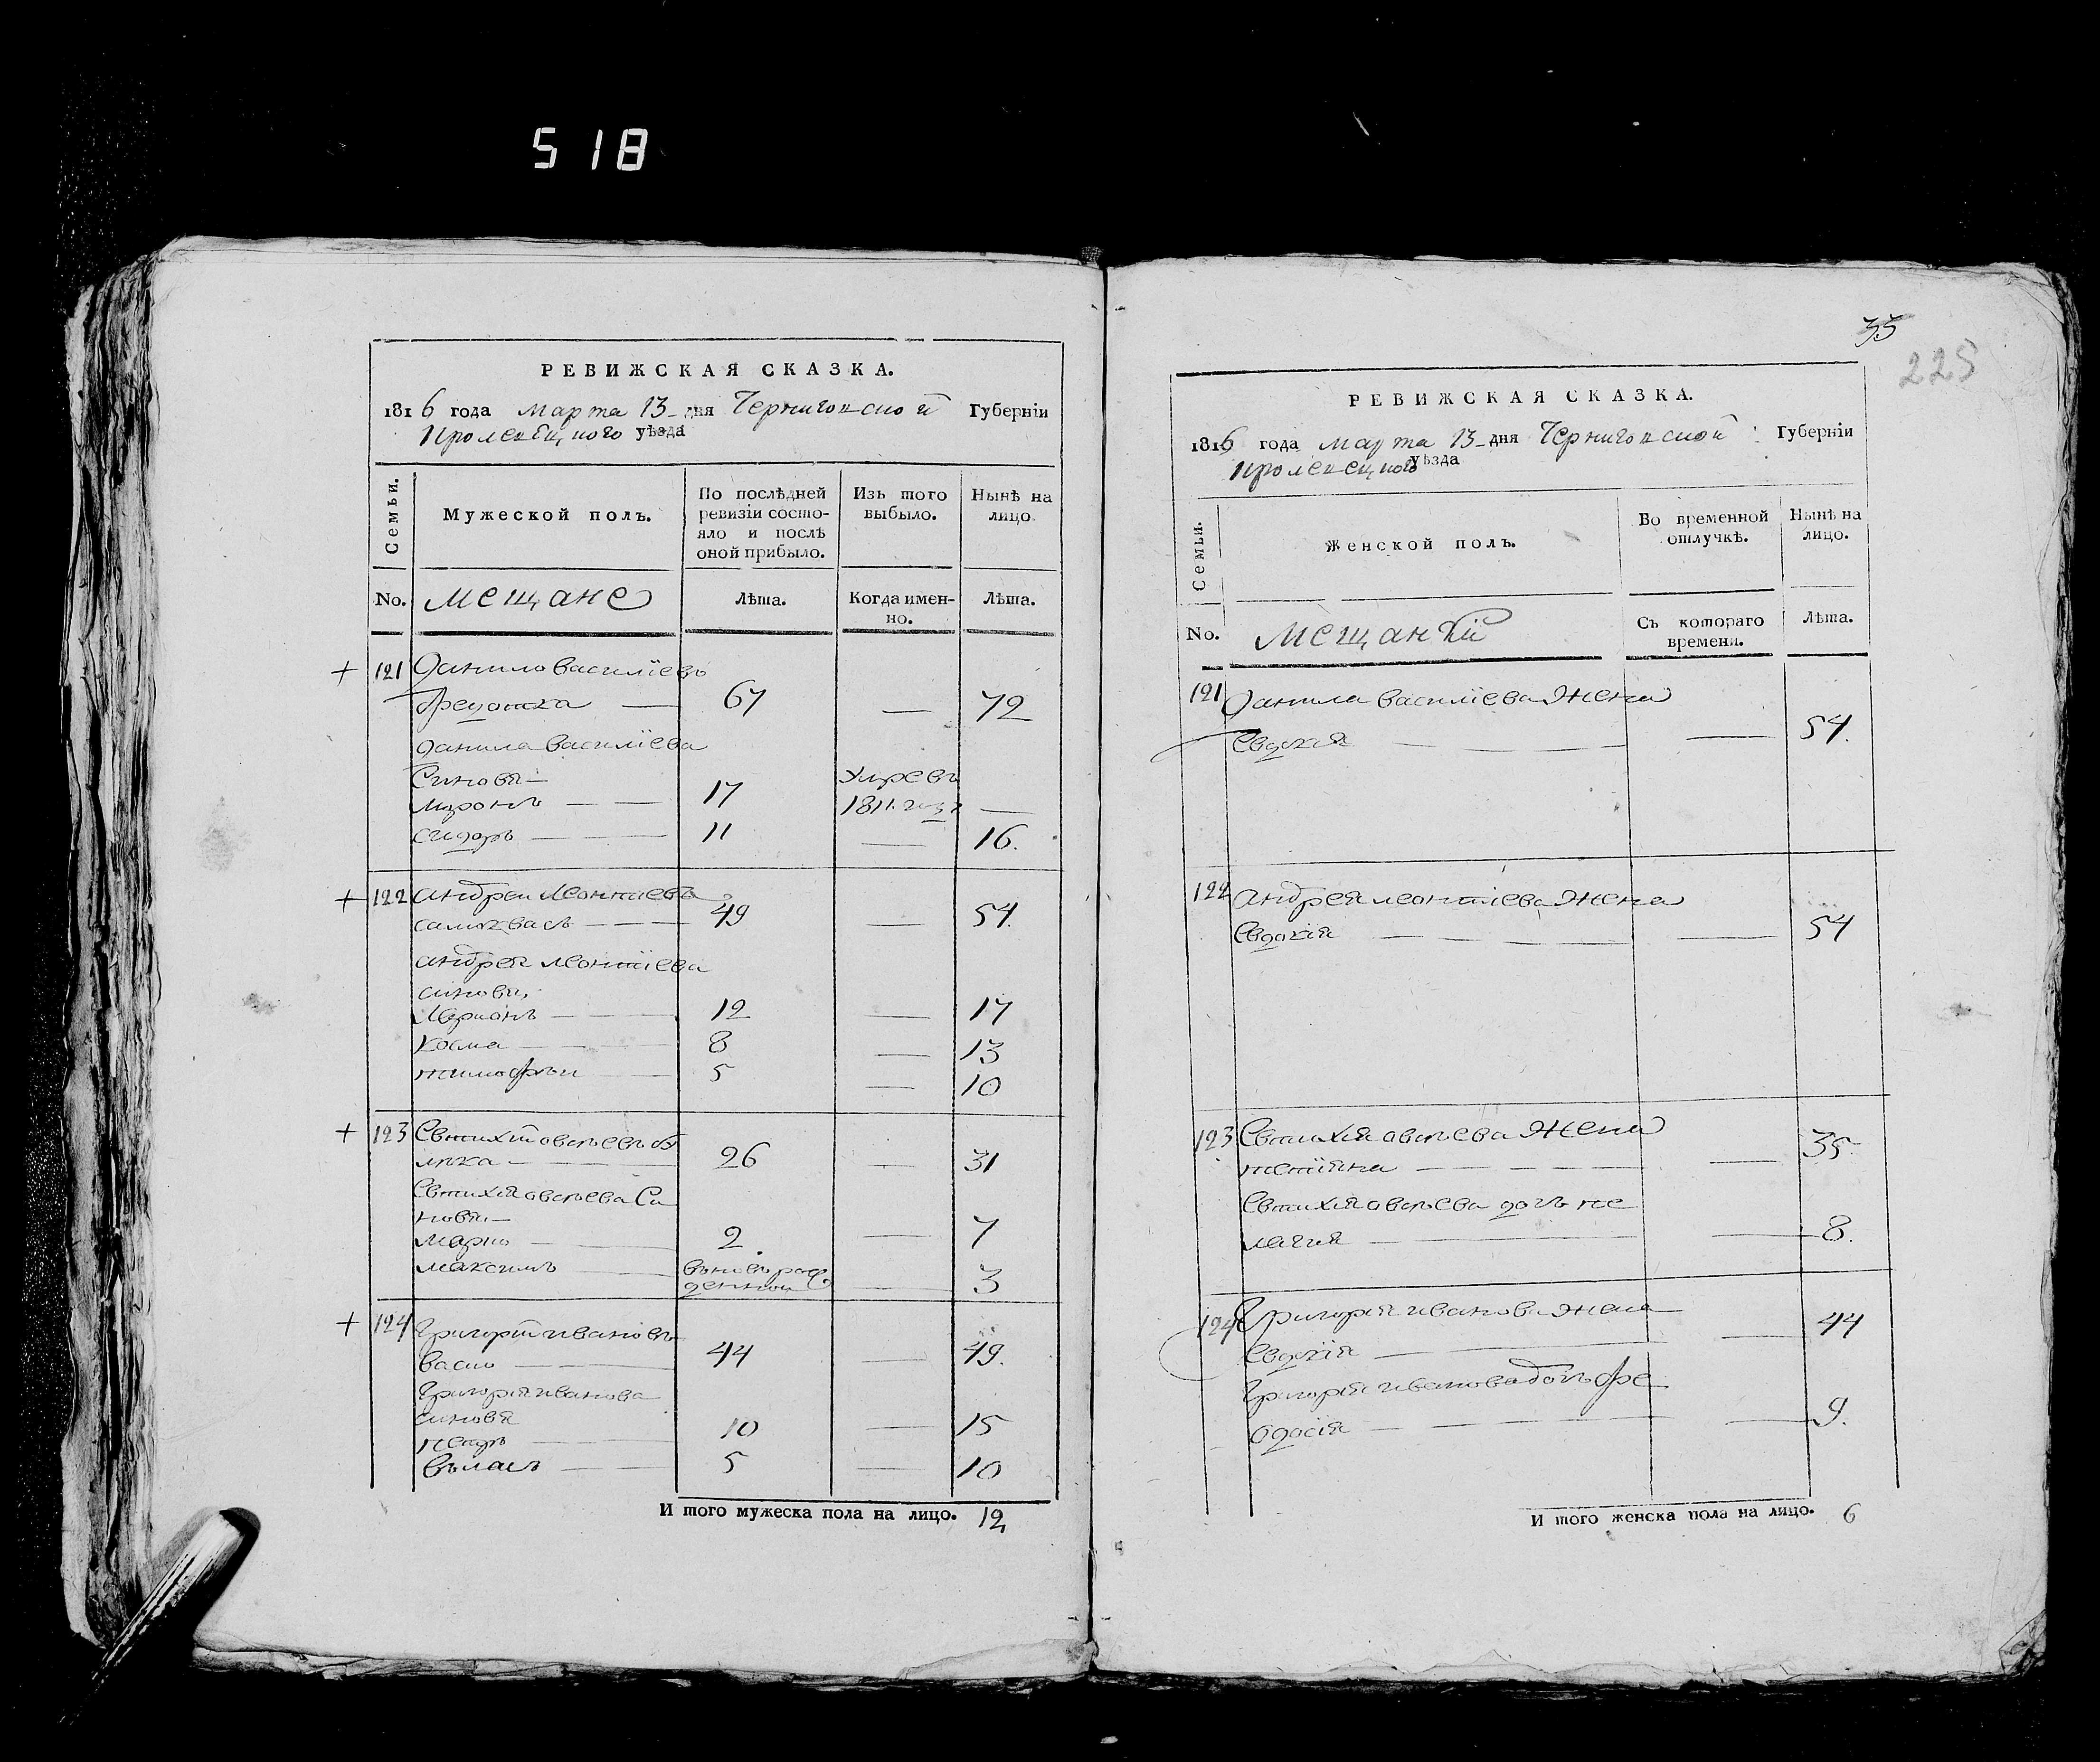 518
РЕВИЖСКАЯ СКАЗКА.
1816 года марта 13 дня Черниговской Губерніи
Кролевецкого уѣзда
Семьи.
Мужеской полъ.
По послѣдней ревизіи состояло и послѣ оной прибыло.
Изъ того выбыло.
Нынѣ на лицо.
No.
мещане
Лѣта.
Когда именно.
Лѣта.
121 Данило василіевъ
67 — 72
данила василіева
Синовя
миронъ 17 умре въ 1811 году —
сидоръ 11 — 16.
122 андреи леонтіевъ
самоквасъ 49 — 54.
андрея леонтіева
синовя
Ларионъ 12 — 17
косма 8 — 13
тимофѣи 5 — 10
123 Евтихій овсѣевъ
26 — 31
Евтихия овсѣева Си
новя
марко 2 — 7
максимъ — 3
124 Григорій ивановъ
44 — 49.
Григорія иванова
синовя
петръ 10 — 15
власъ 5 — 10
И того мужеска пола на лицо. 12
35
225
РЕВИЖСКАЯ СКАЗКА.
1816 года марта 13 дня Черниговской Губерніи
Кролевецкого уѣзда
Семьи.
Женской полъ.
Во временной отлучкѣ.
Нынѣ на лицо.
No.
Съ котораго времени.
Лѣта.
121 Данила василіева жена
Евдокия — 54.
122 андрея леонтіева жена
Евдокія — 54
123 Евтихия овсѣева жена
татіяна — 35
Евтихия овсѣева дочъ пе
лагия — 8.
124 Григорія иванова жена
Евдокія — 44
Григорія иванова дочъ фе
одосія — 9.
И того женска пола на лицо. 6